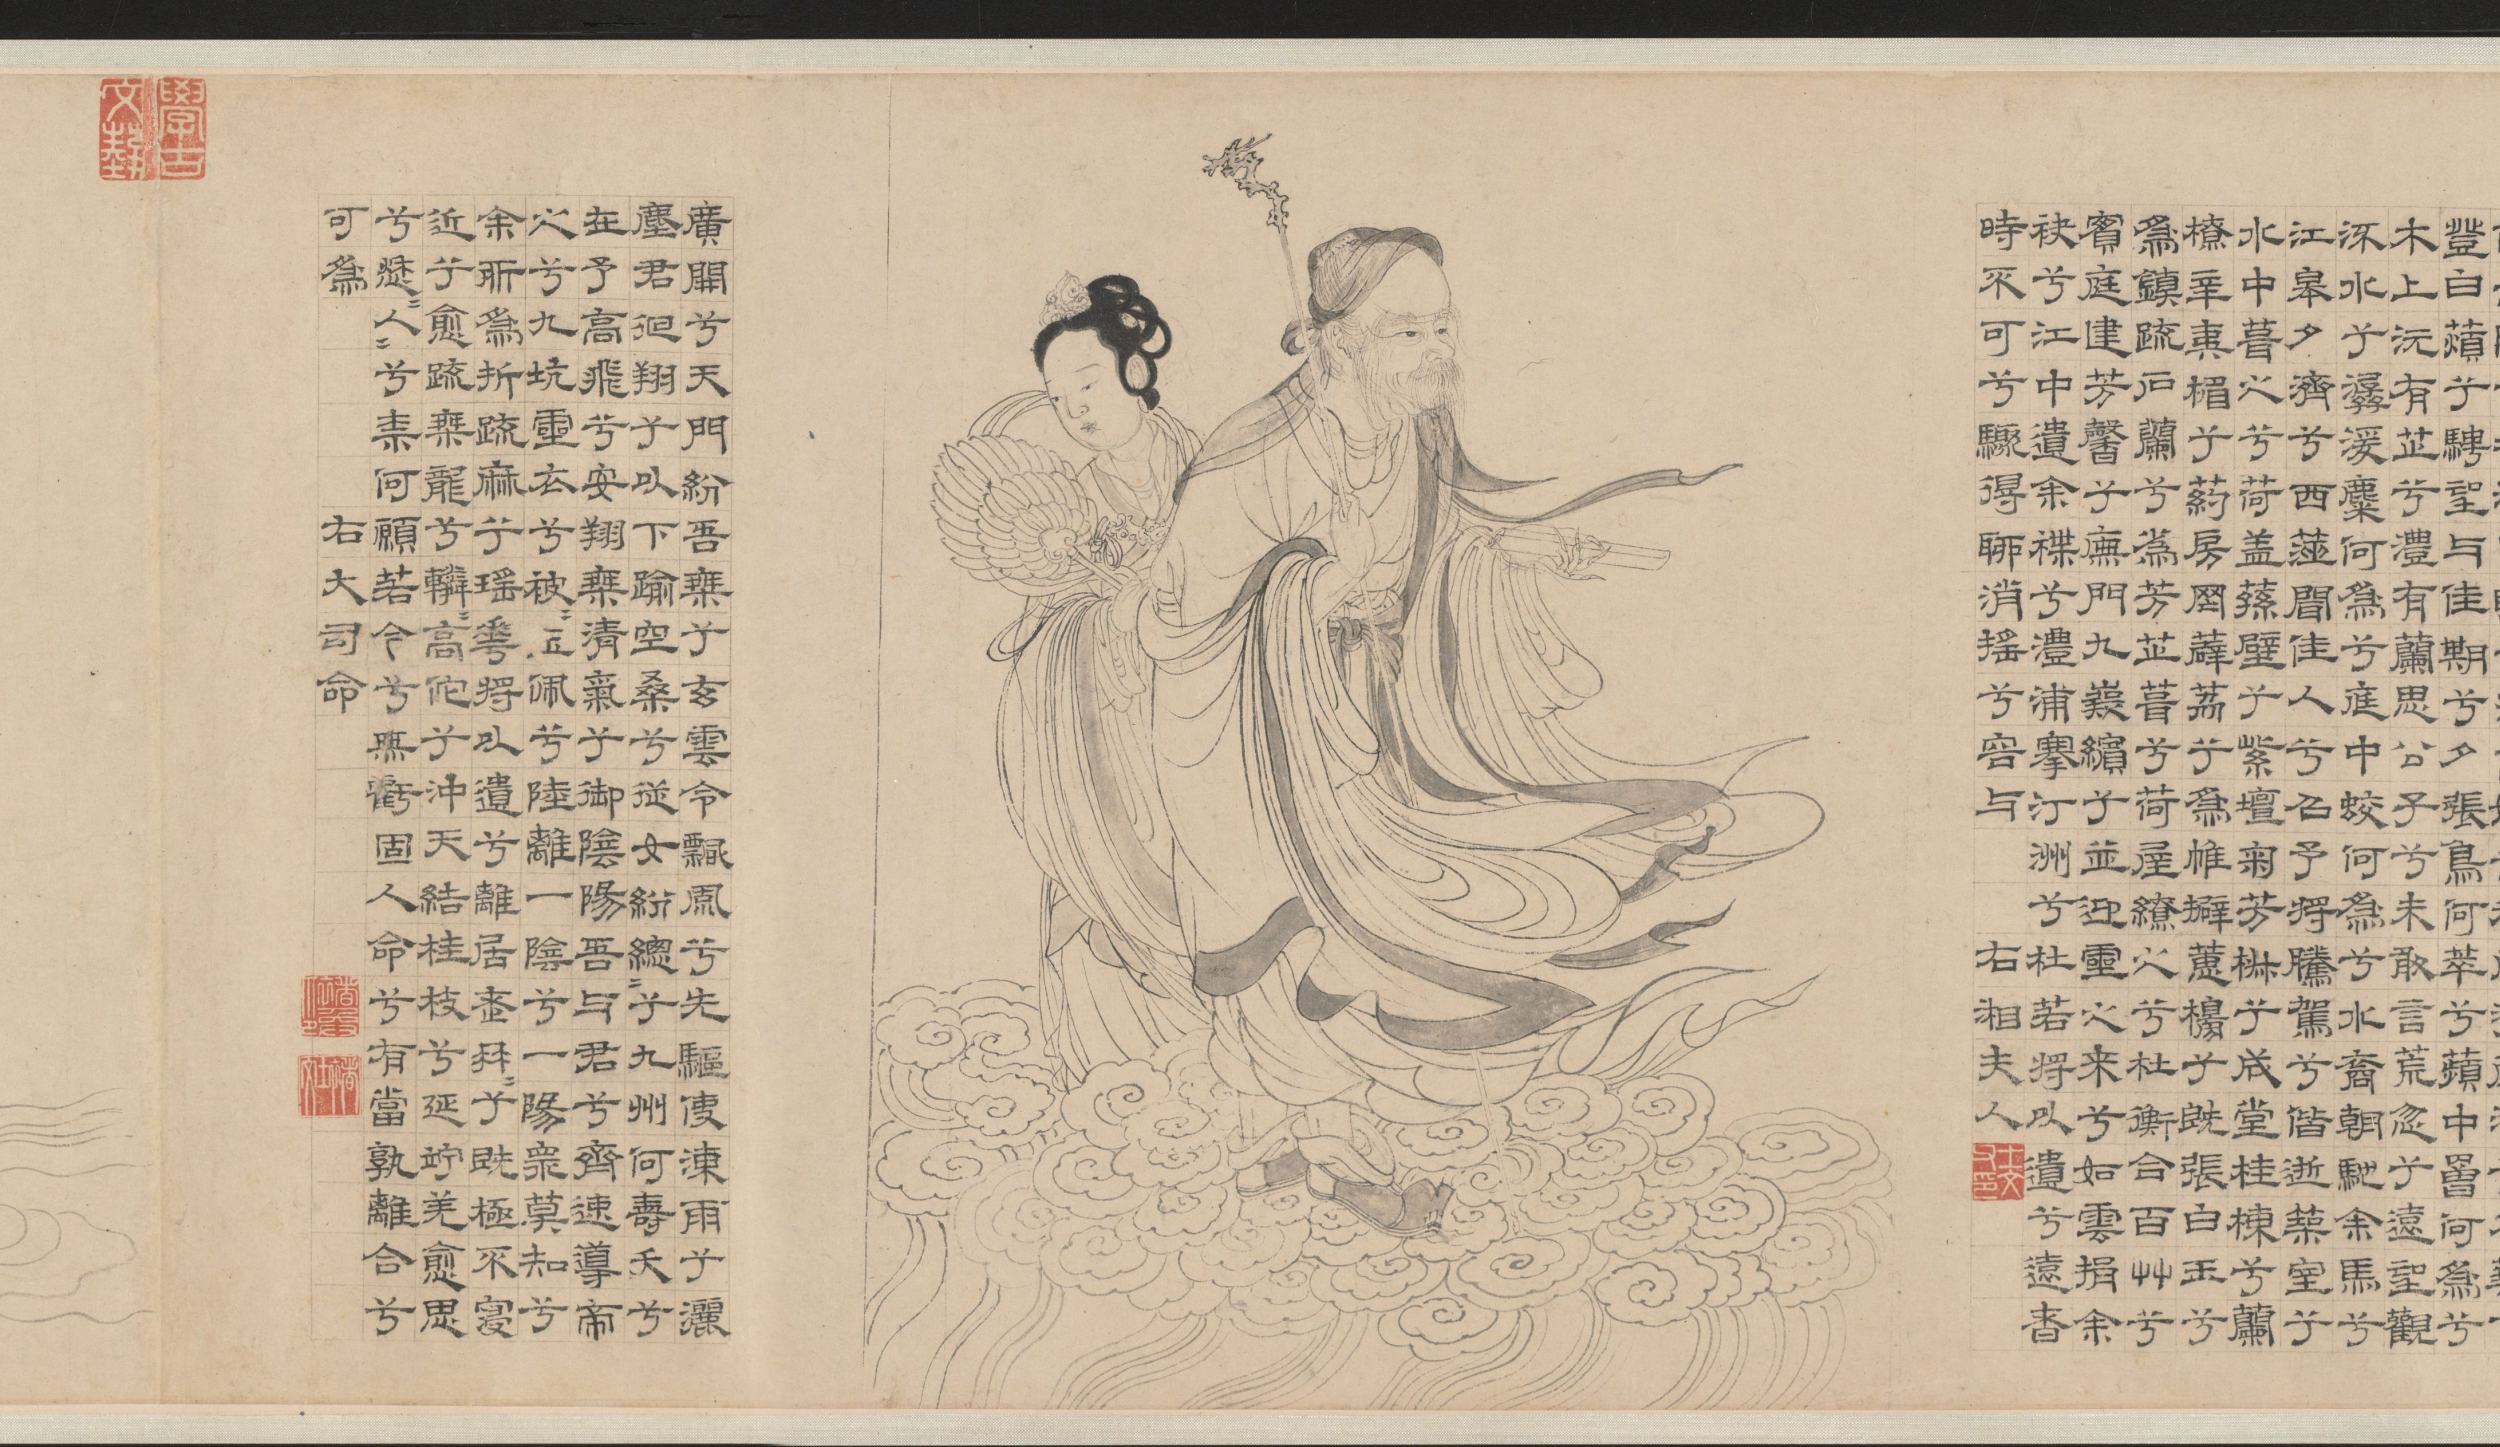 登白蘋兮騁望与佳期兮夕張鳥何萃兮蘋中罾何爲兮
木上沅有芷兮澧有蘭思公子兮未敢言荒忽兮遠望觀
流水兮潺湲麋何爲兮庭中蛟何爲兮水裔朝馳余馬兮
江皋夕濟兮西澨聞佳人兮召予將騰駕兮偕逝築室兮
水中葺之兮荷蓋蓀壁兮紫壇菊芳椒兮成堂桂棟兮蘭
橑辛夷楣兮葯房罔薜荔兮爲帷擗蕙櫋兮既張白玉兮
爲鎮疏石蘭兮爲芳芷葺兮荷屋繚之兮杜衡合百艸兮
實庭建芳馨兮廡門九嶷繽兮並迎靈之来兮如雲捐余
袂兮江中遺余褋兮澧浦搴汀洲兮杜若將以遺兮遠者
時不可兮驟得聊消搖兮容与 右湘夫人
廣開兮天門紛吾乘兮玄雲令飄風兮先驅使涷雨兮灑
塵君迴翔兮以下踰空桑兮從女紛總〻兮九州何壽夭兮
在予高飛兮安翔乘清氣兮御陰陽吾与君兮齊速導帝
之兮九坑靈衣兮被〻玉佩兮陸離一陰兮一陽衆莫知兮
余所爲折疏麻兮瑤華將以遺兮離居老冉〻兮既極不寖
近兮愈疏乘龍兮轔〻高佗兮沖天結桂枝兮延竚羌愈思
兮愁〻人〻兮柰何願若今兮無虧固人命兮有當孰離合兮
可爲 右大司命
學古
文埶